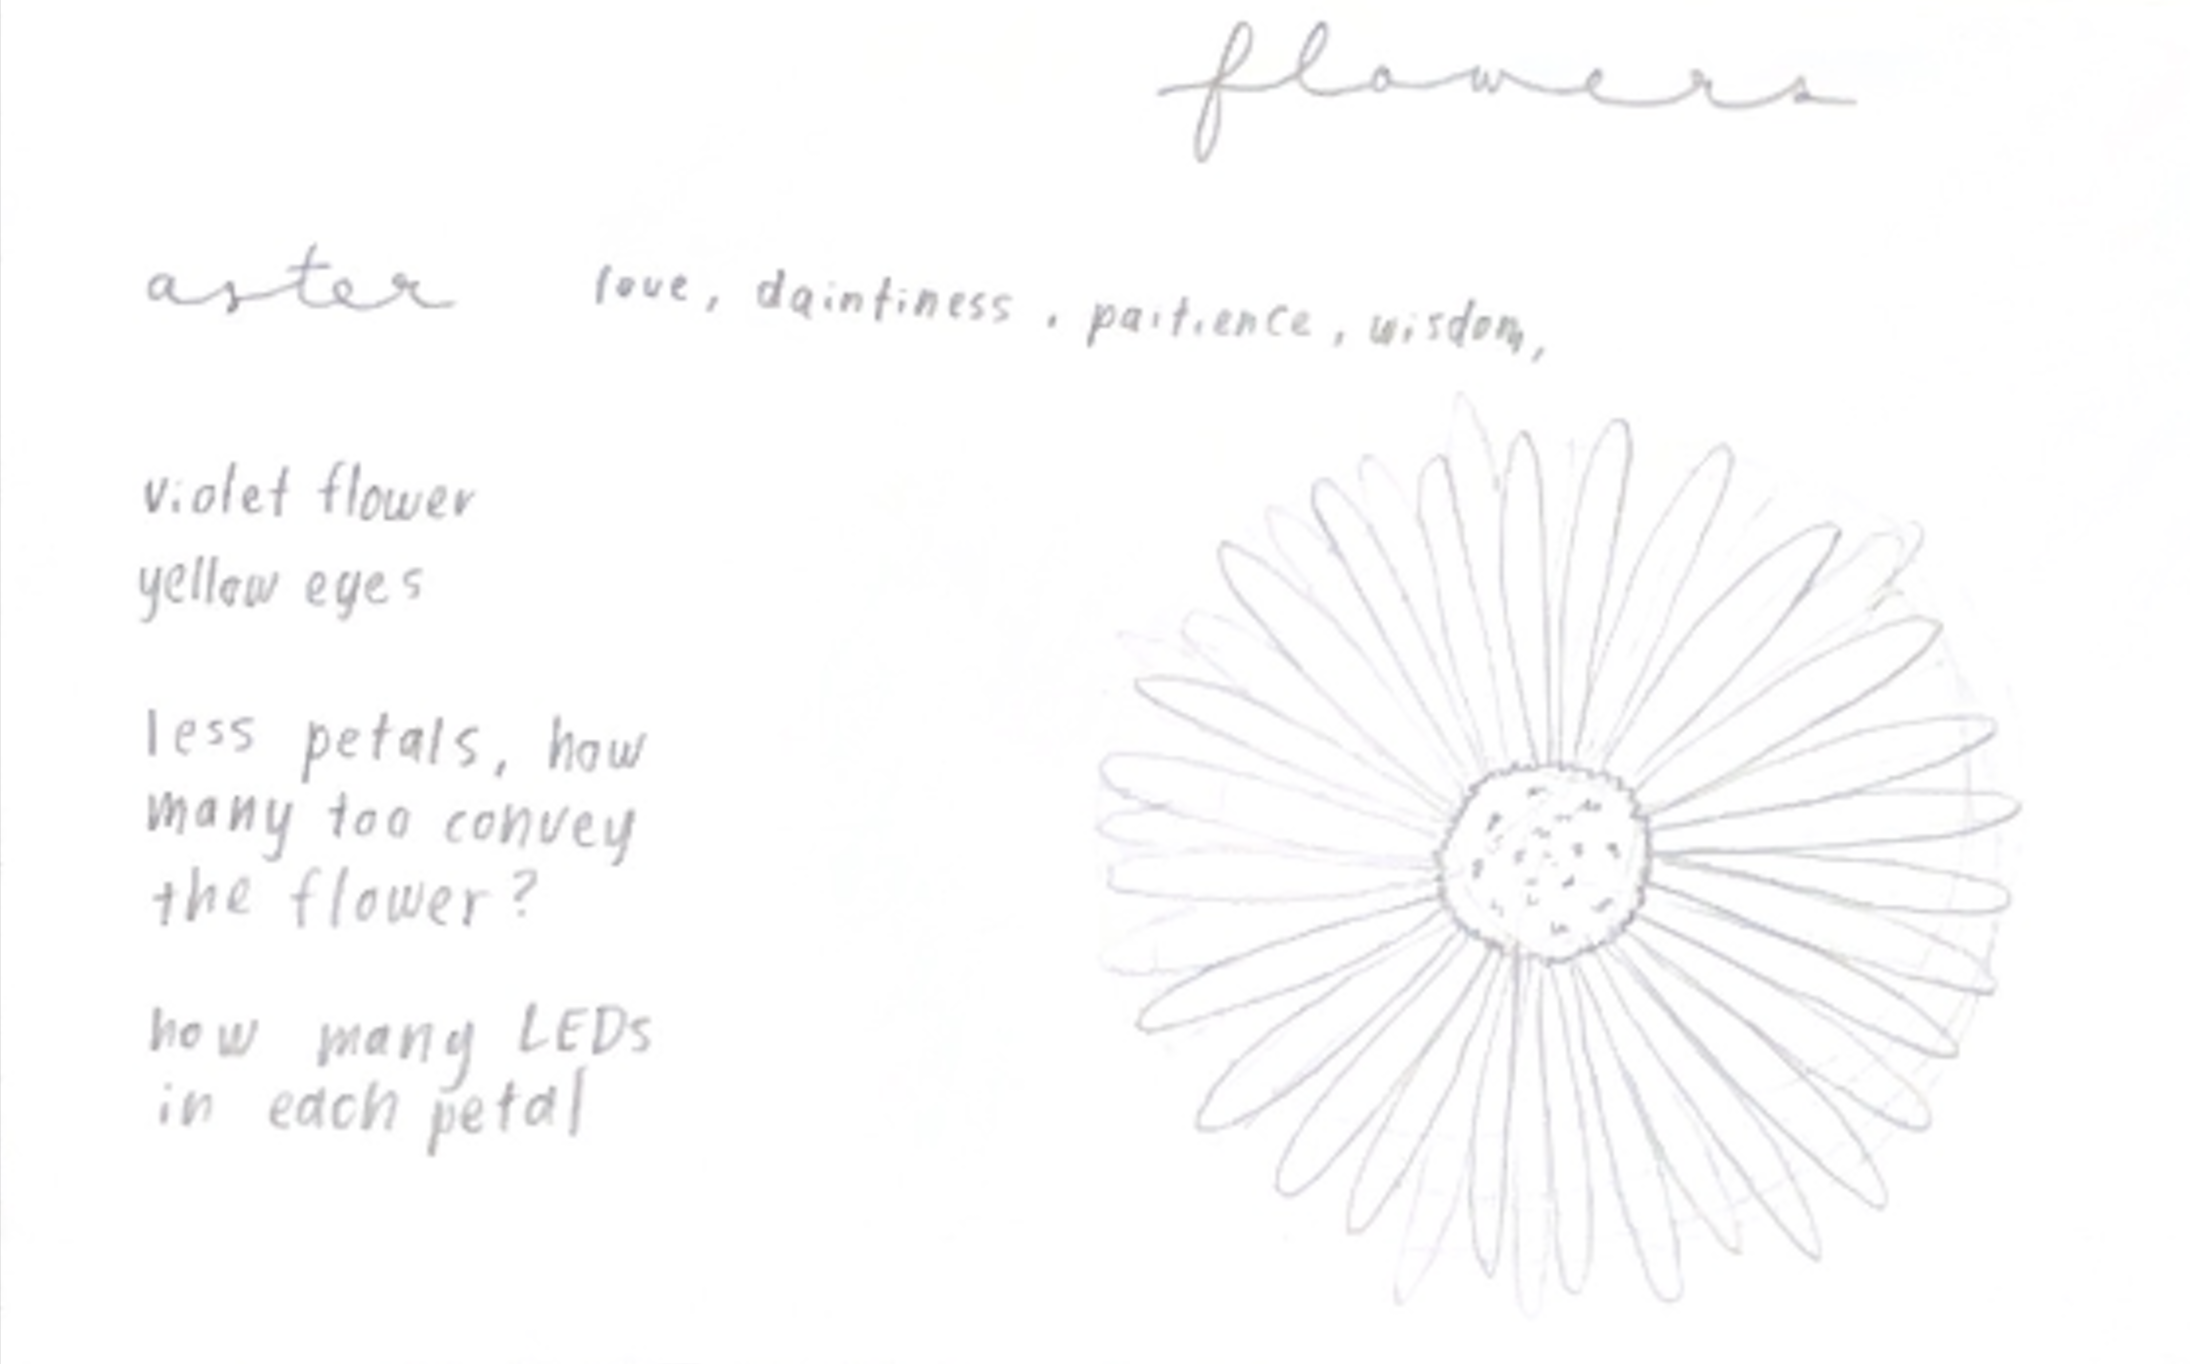 flowers
aster love, daintiness, paitience, wisdom,
violet flower
yellow eyes
less petals, how
many too convey
the flower?
how many LEDs
in each petal